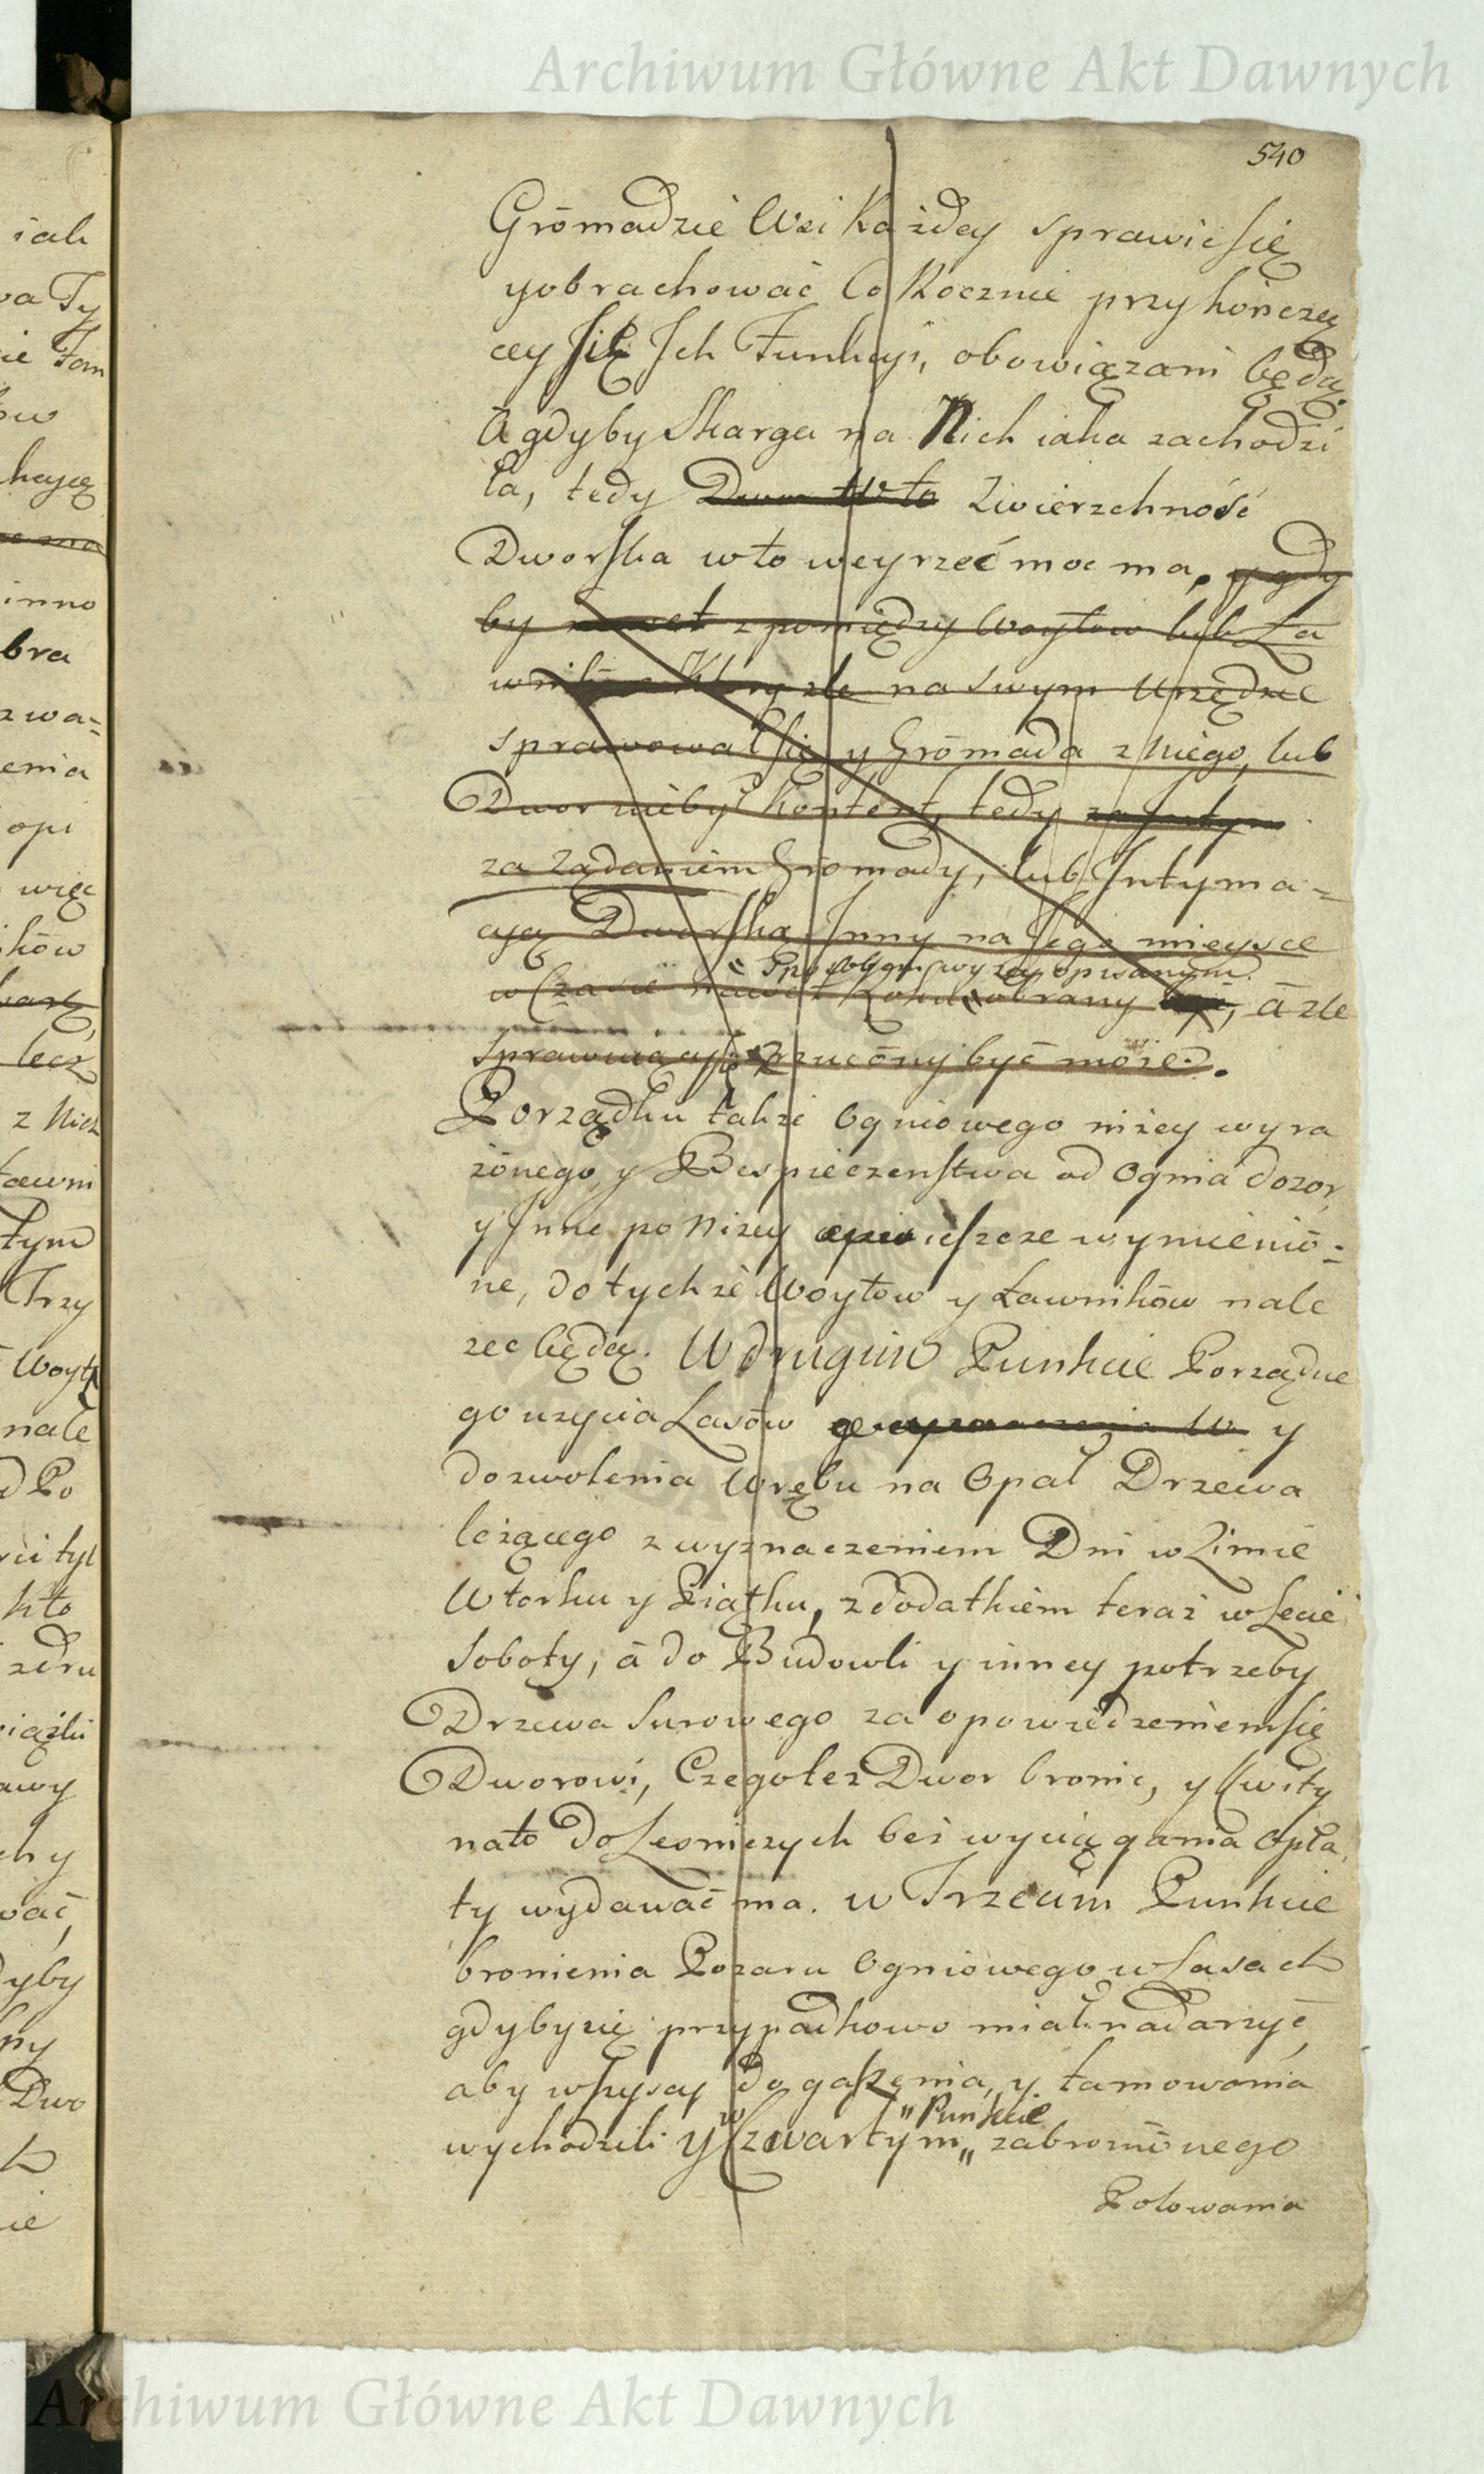 Archiwum Główne Akt Dawnych
540
Grōmadzie Wsi Każdey sprawić się
y obrachować Co Rocznie przy kończą
cey się Ich Funkcyi, obowiązani będą.
A gdyby Skarga na Nich iaka zachodzi
ła, tedy Dwor w to Zwierzchność
Dworska w to weyrzeć moc ma, y gdy
by nawet z pomiędzy Woytow lub Ła
wników Ktory źle na swym Urzędzie
sprawował się y Grōmada z Niego, lub
Dwor nie był Kontent, tedy za Intym
za Ządaniem Gromady, lub Intyma=
cyą Dworską Inny na Jego mieysce
Sposobem wyzey opisanym
w Czasie nawet Roku obrany być, á zle
sprawuiący się zrzucōny być może.
Porządku także Ogniowego niżey wyra
żōnego, y Bespieczenstwa od Ognia dozor,
y Inne po Niżey ieszcze wymieniō=
ne, do tychże Woytow y Ławnikōw nale
żec będą. W drugim Punkcie Porządne
go uzycia Lasōw y
dozwolenia Wrębu na Opał Drzewa
leżącego z wyznaczeniem Dni w Zimie
Wtorku y Piątku, z dodatkiem teraz w Lecie
Soboty, á do Budowli y inney potrzeby
Drzewa Surowego za opowiedzeniem się
Dworowi, Czego też Dwor bronić, y Kwity
na to do Lesniczych bez wyciągania Opła
ty wydawać ma. w Trzecim Punkcie
bronienia Pożaru Ogniowego w Lasach
gdyby się przypadkowo miał nadarzyć,
aby wszyscy do gaszenia, y tamowania
w " Punkcie
wychodzili y Czwartym " zabroniōnego
Polowania
iak
wa Ty
inno
bra
zwa=
enia
opi
więc
ików
lecz
z Nich
tym
Trzy
Woyt
nale
d Po
kto
zdru
awy
wać,
dyby
Dwo
ie
Archiwum Główne Akt Dawnych